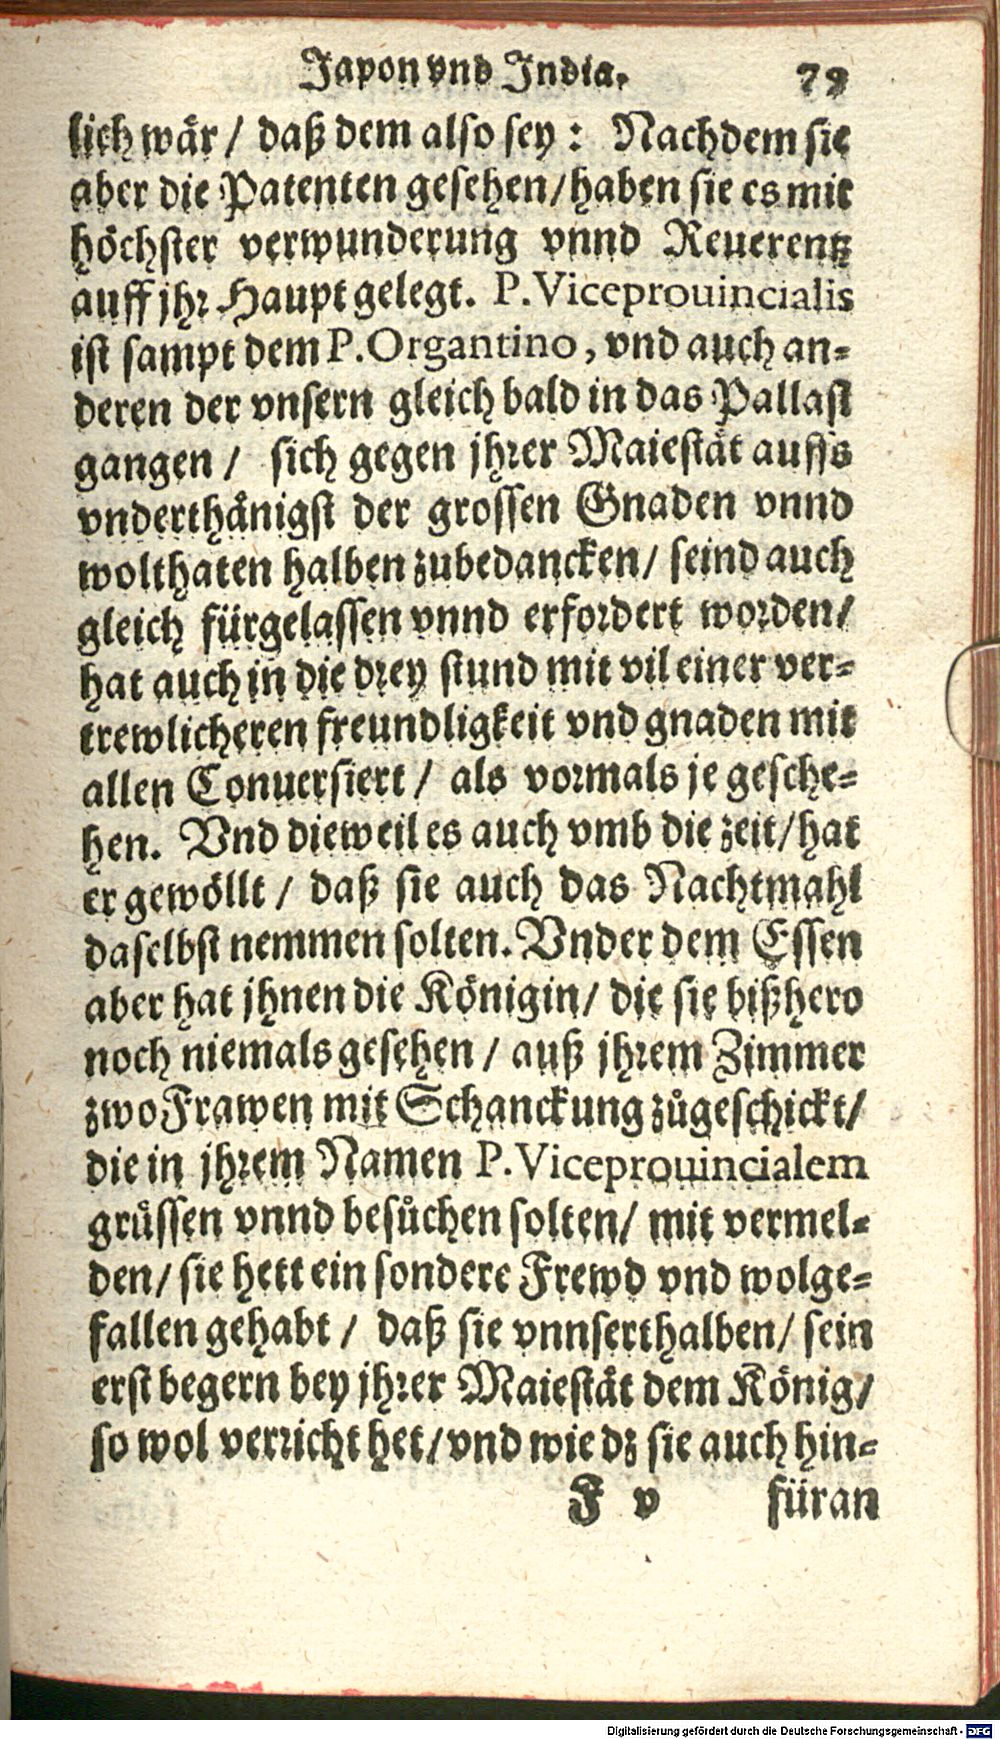 Japon vnd India. 79
lich wär / daß dem also sey : Nachdem sie
aber die Patenten gesehen / haben sie es mit
höchster verwunderung vnnd Reuerentz
auff jhr Haupt gelegt. P. Viceprouincialis
ist sampt dem P. Organtino, vnd auch an-
deren der vnsern gleich bald in das Pallast
gangen / sich gegen jhrer Maiestät auffs
vnderthänigst der grossen Gnaden vnnd
wolthaten halben zubedancken / seind auch
gleich fürgelassen vnnd erfordert worden /
hat auch in die drey stund mit vil einer ver-
trewlicheren freundligkeit vnd gnaden mit
allen Conuersiert / als vormals je gesche-
hen. Vnd dieweil es auch vmb die zeit / hat
er gewöllt / daß sie auch das Nachtmahl
daselbst nemmen solten. Vnder dem Essen
aber hat jhnen die Königin / die sie bißhero
noch niemals gesehen / auß jhrem Zimmer
zwo Frawen mit Schanckung zůgeschickt /
die in jhrem Namen P. Viceprouincialem
grüssen vnnd besůchen solten / mit vermel-
den / sie hett ein sondere Frewd vnd wolge-
fallen gehabt / daß sie vnnserthalben / sein
erst begern bey jhrer Maiestät dem König /
so wol verricht het / vnd wie dz sie auch hin-
F v füran
Digitalisierung gefördert durch die Deutsche Forschungsgemeinschaft - DFG